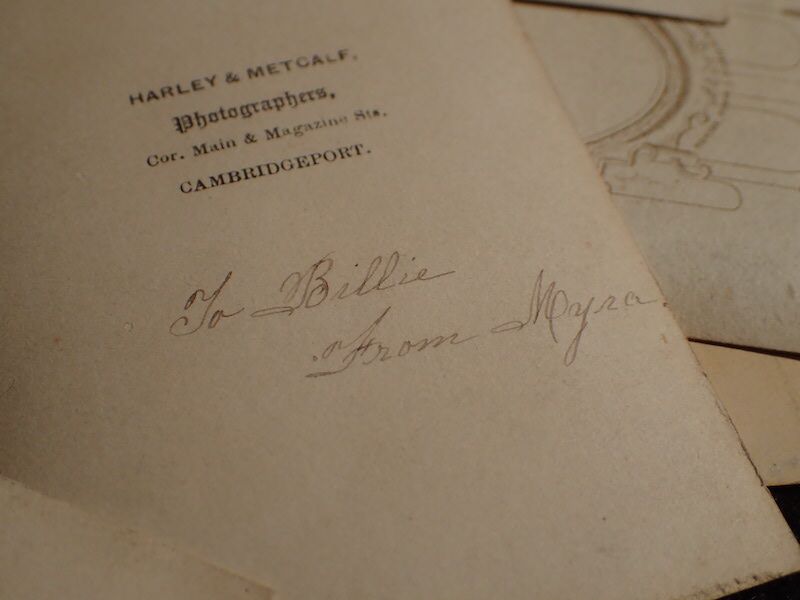 HARLEY & METCALF,
Photographers,
Cor. Main & Magazine Sts.
CAMBRIDGEPORT.
To Billie
From Myra.